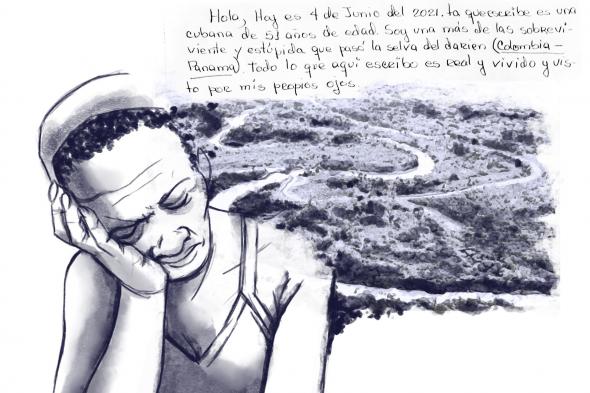 Hola, Hoy es 4 de Junio del 2021. la que escribe es una
cubana de 53 años de edad. Soy una más de las sobrevi-
viente y estúpida que pasó la selva del darien (Colombia -
Panama). Todo lo que aquí escribo es real y vivido y vis-
to por mis propios ojos.